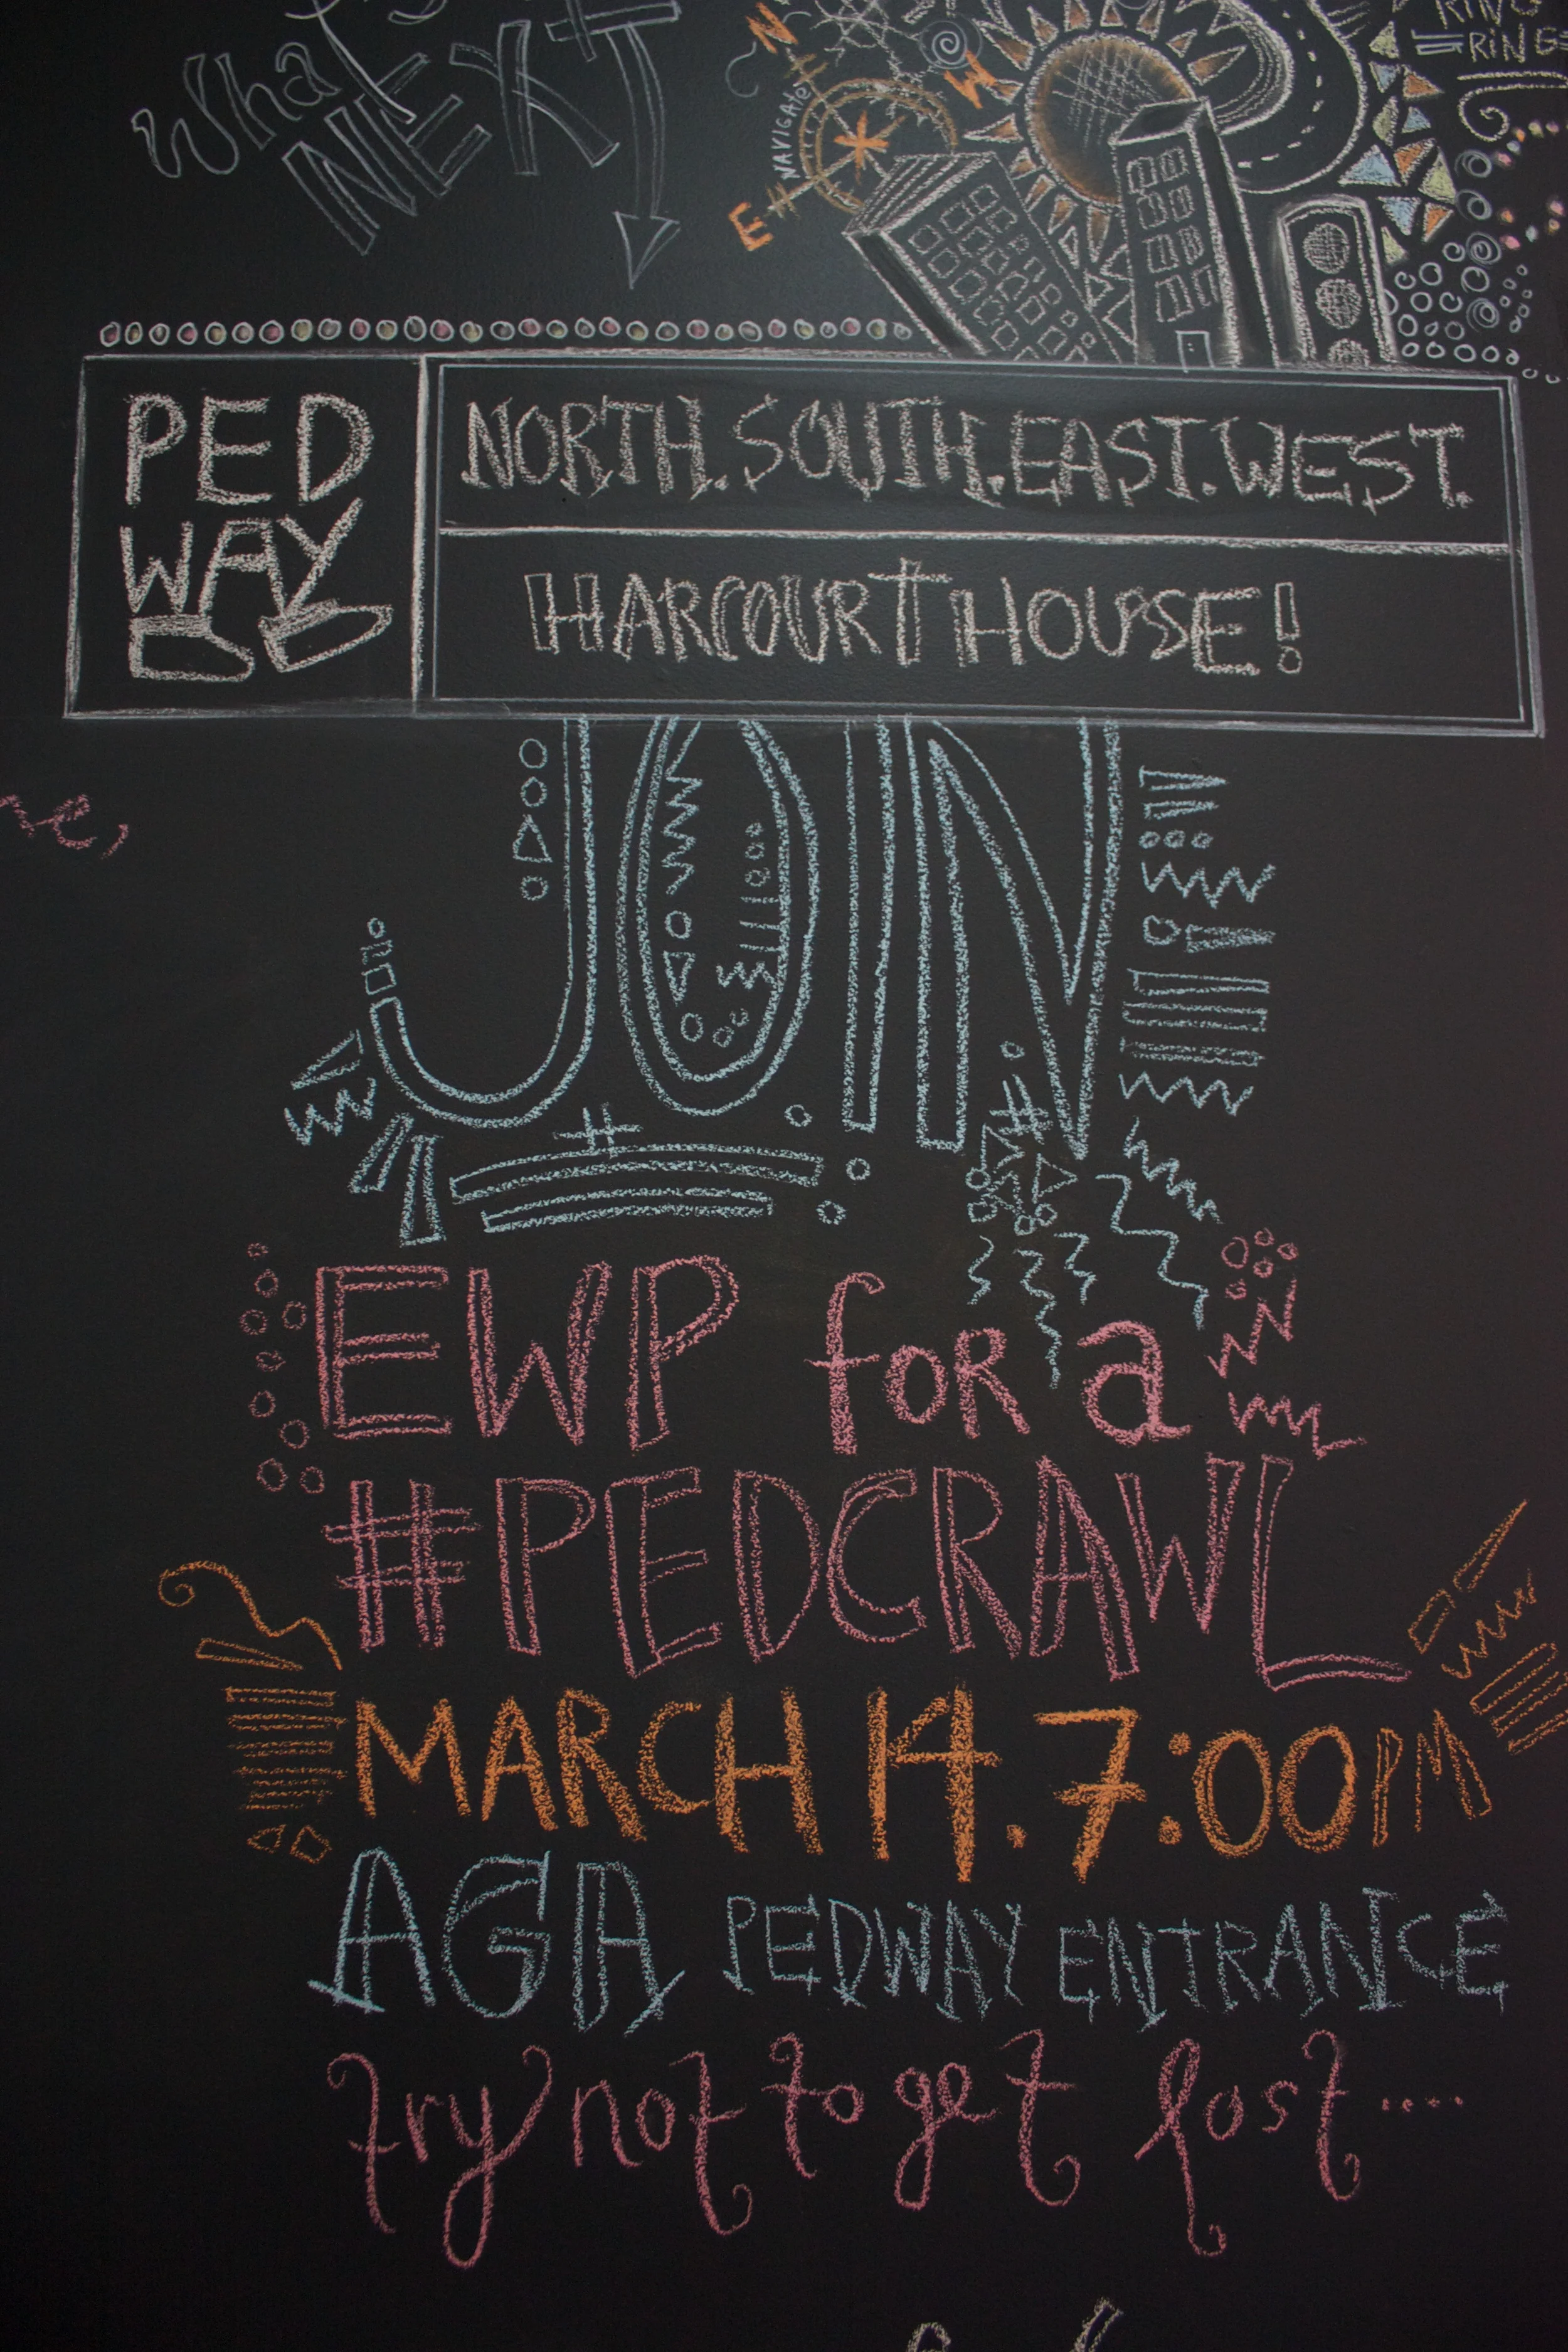 What
NEXT
N
W
NAVIGATE
E
RING
RINGS
PED
WAY
NORTH.SOUTH.EAST.WEST.
HARCOURT HOUSE!
JOIN
EWP for a
#PEDCRAWL
MARCH 14. 7:00PM
AGA PEDWAY ENTRANCE
try not to get lost....